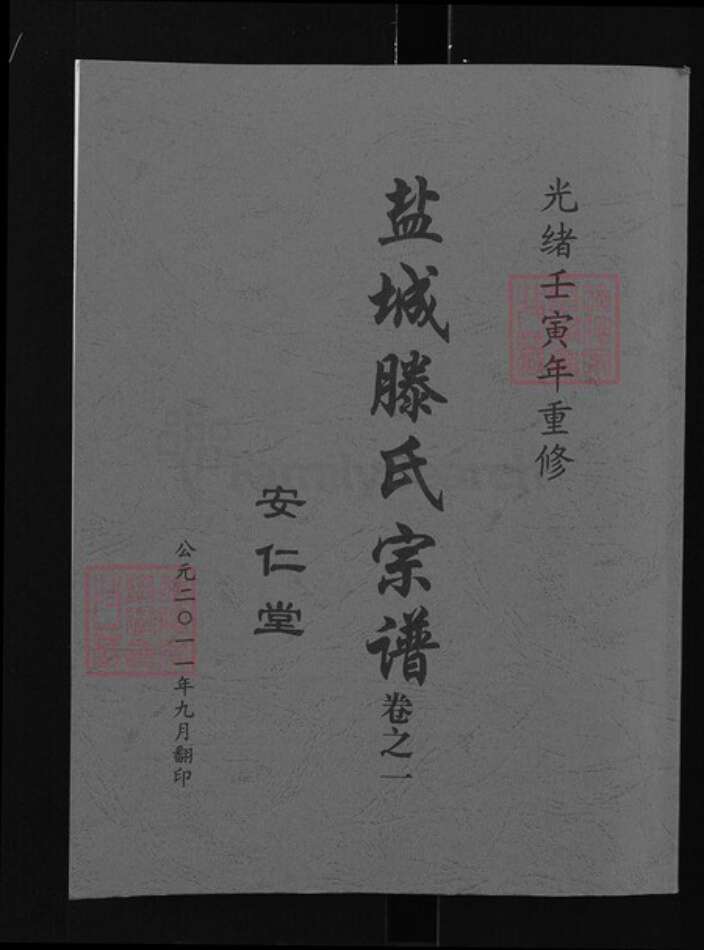 光绪壬寅年重修
盐城滕氏宗谱卷之一
安仁堂
公元二〇一一年九月翻印